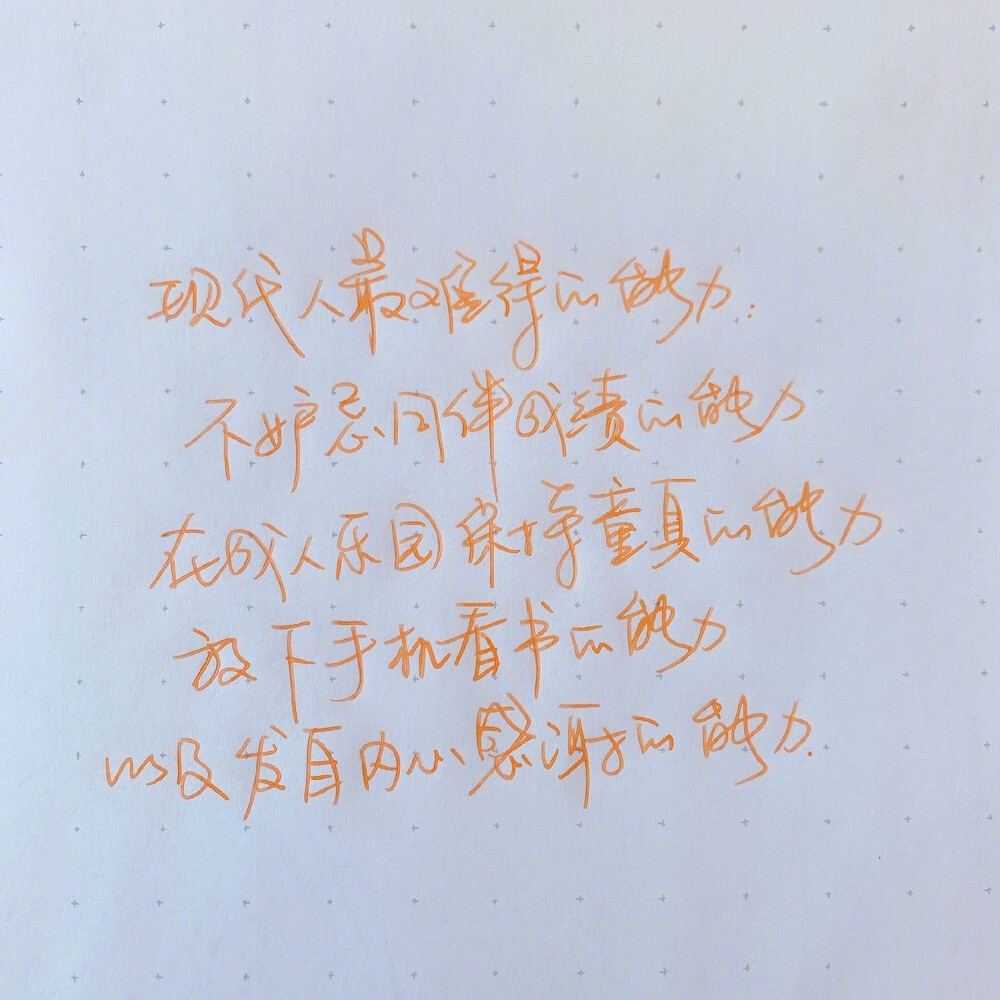 现代人最难得的能力:
不妒忌同伴成绩的能力
在成人乐园保持童真的能力
放下手机看书的能力
以及发自内心感谢的能力.